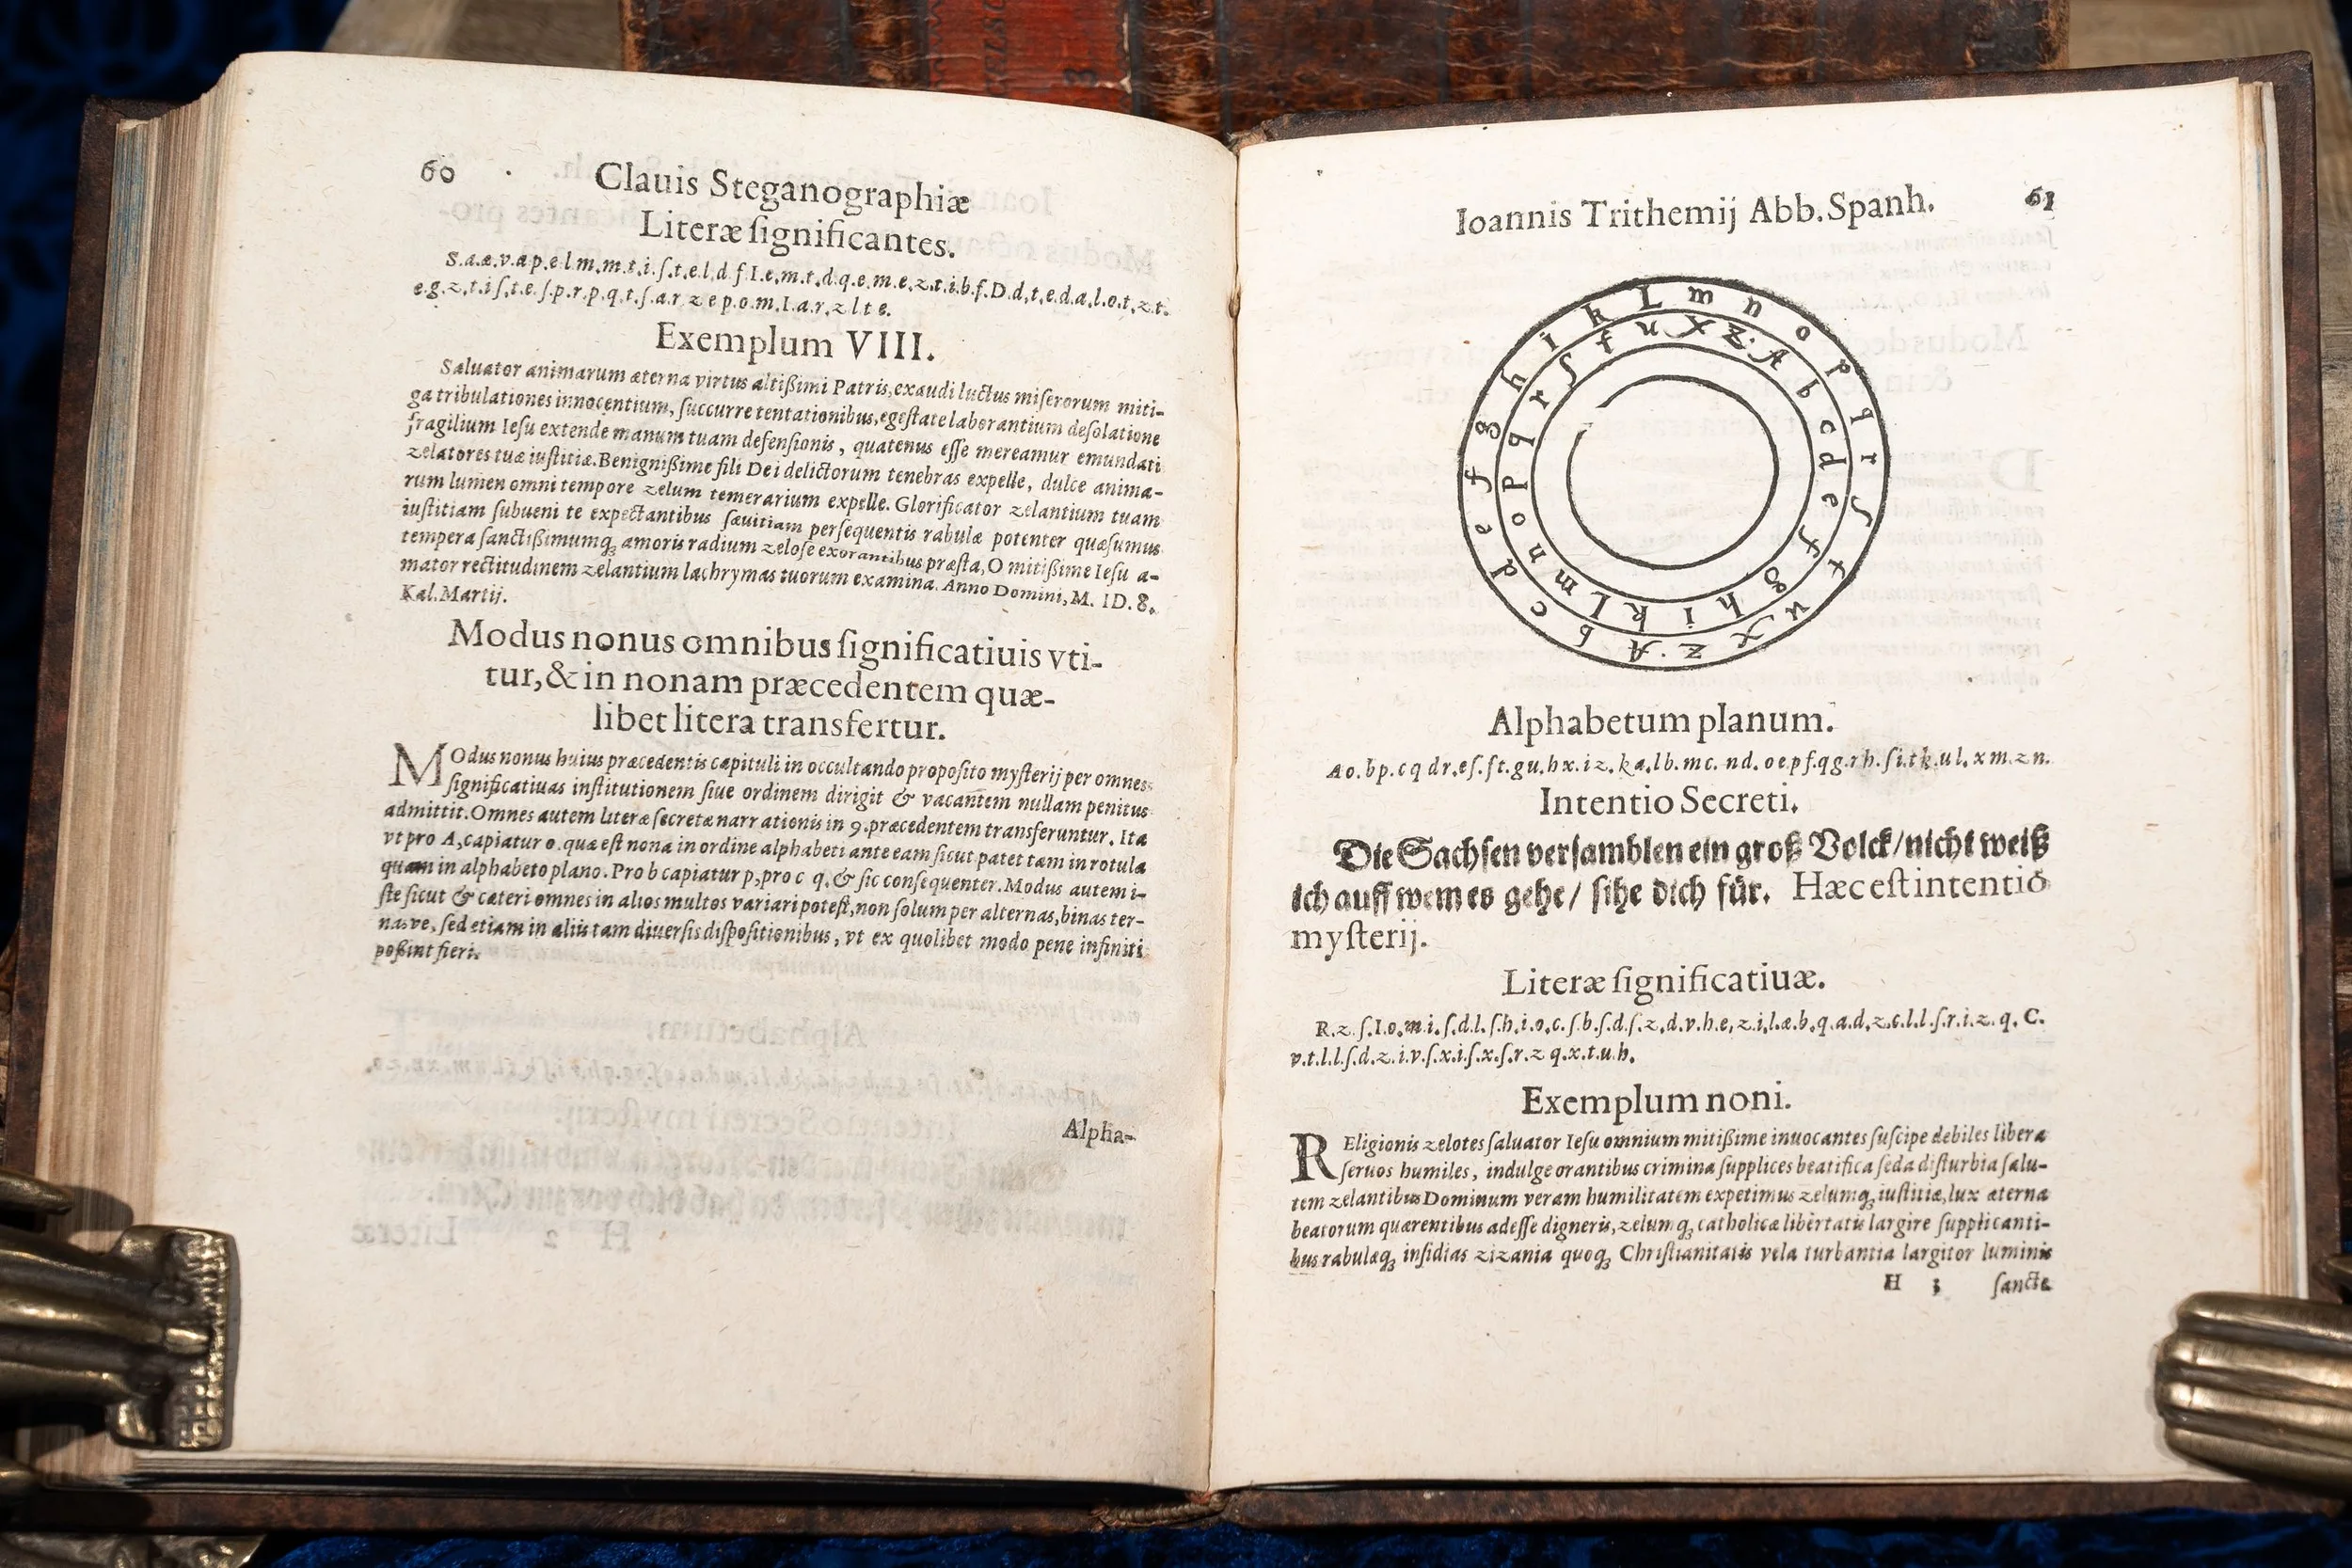 60
Clauis Steganographiæ
Literæ ſignificantes.
S.a.æ.v.a p.e l m.m.t.i.ſ.t.e.l.d f I.e.m.t.d.q.e.m.e.z.t.i.b.f.D.d,t.e.d.a,l.o.t,z.t.
e.g.z,t.i ſ,t.e.ſ.p.r.p.q.t.ſ.a.r z e p.o.m.I.a.r.z l t e.
Exemplum VIII.
Saluator animarum æterna virtus altißimi Patris, exaudi luctus miſerorum miti-
ga tribulationes innocentium, ſuccurre tentationibus, egeſtate laborantium deſolatione
fragilium Ieſu extende manum tuam defenſionis, quatenus eſſe mereamur emundati
zelatores tuæ iuſtitiæ. Benignißime fili Dei delictorum tenebras expelle, dulce anima-
rum lumen omni tempore zelum temerarium expelle. Glorificator zelantium tuam
iuſtitiam ſubueni te expectantibus ſæuitiam perſequentis rabulæ potenter quæſumus
tempera ſanctißimumq; amoris radium zeloſe exorantibus præſta, O mitißime Ieſu a-
mator rectitudinem zelantium lachrymas tuorum examina. Anno Domini, M. ID. 8.
Kal. Martij.
Modus nonus omnibus ſignificatiuis vti-
tur, & in nonam præcedentem quæ-
libet litera transfertur.
MOdus nonus huius præcedentis capituli in occultando propoſito myſterij per omnes
ſignificatiuas inſtitutionem ſiue ordinem dirigit & vacantem nullam penitus
admittit. Omnes autem literæ ſecretæ narrationis in 9. præcedentem transferuntur. Ita
vt pro A, capiatur o. quæ eſt nona in ordine alphabeti ante eam ſicut patet tam in rotula
quam in alphabeto plano. Pro b capiatur p, pro c q, & ſic conſequenter. Modus autem i-
ſte ſicut & cæteri omnes in alios multos variari poteſt, non ſolum per alternas, binas ter-
nasve, ſed etiam in aliis tam diuerſis diſpoſitionibus, vt ex quolibet modo pene infiniti
poßint fieri.
Alpha-
Ioannis Trithemij Abb. Spanh.
61
A b c d e f g h i k L m n o p q r ſ t u x z.
A b c d e f g h i k L m n o p q r ſ t u x z.
Alphabetum planum.
Ao.bp.cq dr.eſ.ft.gu.hx.iz.ka.lb.mc.nd.oe.pf.qg.rh.ſi.tk.ul.xm.zn.
Intentio Secreti.
Die Sachſen verſamblen ein groß Volck/ nicht weiß
ich auff wem es gehe/ ſihe dich für. Hæc eſt intentio
myſterij.
Literæ ſignificatiuæ.
R.z.ſ.I.o.m.i.ſ.d.l.ſ.h.i.o.c.ſ.b.ſ.d.ſ.z.d.v.h.e,z.i.l.æ.b.q.a.d,z.c.l.l.ſ.r.i.z.q.C.
v.t.l.l.ſ.d.z.i.v.ſ.x.i.ſ.x.ſ.r.z q.x.t.u.h.
Exemplum noni.
REligionis zelotes ſaluator Ieſu omnium mitißime inuocantes ſuſcipe debiles libera
ſeruos humiles, indulge orantibus crimina ſupplices beatifica ſeda diſturbia ſalu-
tem zelantibus Dominum veram humilitatem expetimus zelumq; iuſtitiæ, lux æterna
beatorum quærentibus adeſſe digneris, zelumq; catholicæ libertatis largire ſupplicanti-
bus rabulæq; inſidias zizania quoq; Chriſtianitatis vela turbantia largitor luminis
H 3
ſancte